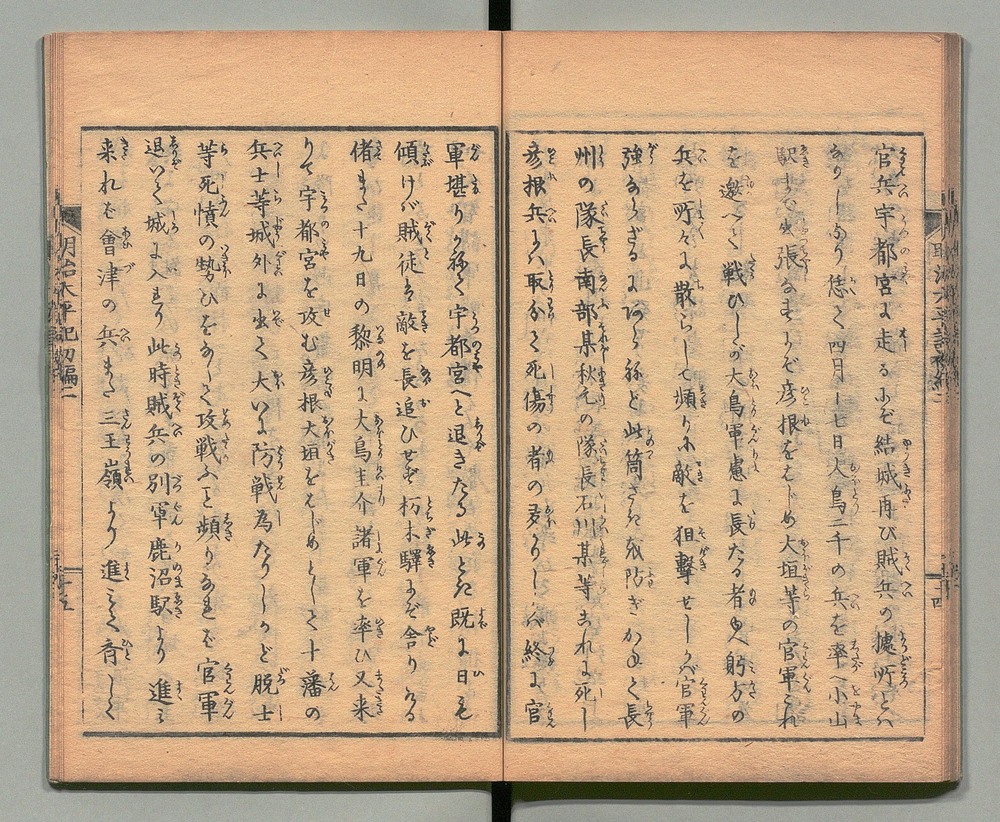 官兵宇都宮に走るにぞ結城再び賊兵の據所とハ
なりしなり恁て四月十七日大鳥二千の兵を率へ小山
駅より出張なすにぞ彦根をはじめ大垣等の官軍これ
を邀へて戦ひしが大鳥軍慮に長たる者ゆへ躬方の
兵を所々に散らして頻りに敵を狙撃せしかバ官軍
強からざるにあらねど此筒さきを防ぎかねて長
州の隊長南部某秋元の隊長石川某等これに死し
彦根兵ハ取分て死傷の者の多かりしバ終に官
軍堪りかねて宇都宮へと退きたる此とき既に日も
傾けバ賊徒も敵を長追ひせず栃木驛にぞ舎りける
偖また十九日の黎明に大鳥圭介諸軍を率ひ又来
りて宇都宮を攻む彦根大垣をはじめとして十藩の
兵士等城外に出て大いに防戦為たりしかど脱士
等死憤の勢ひをなして攻戦ふこと頻りなれど官軍
退いて城に入れり此時賊兵の別軍鹿沼駅より進み
来れば會津の兵また三王嶺より進みて斉しく
明治太平記初編二